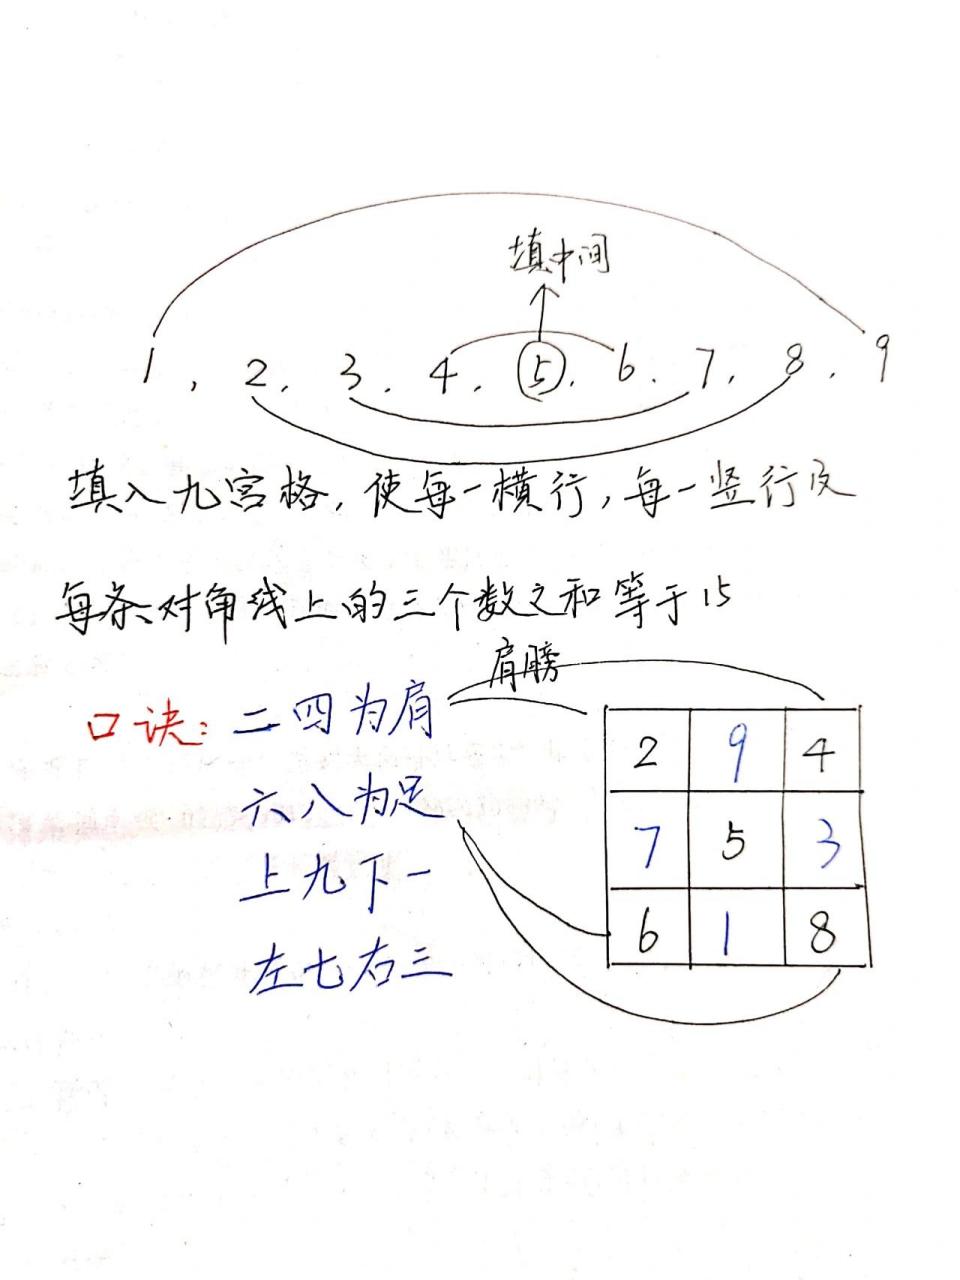 填中间
1, 2, 3, 4, 5, 6, 7, 8, 9
填入九宫格,使每一横行,每一竖行及
每条对角线上的三个数之和等于15
肩膀
口诀:二四为肩
六八为足
上九下一
左七右三
2 9 4
7 5 3
6 1 8